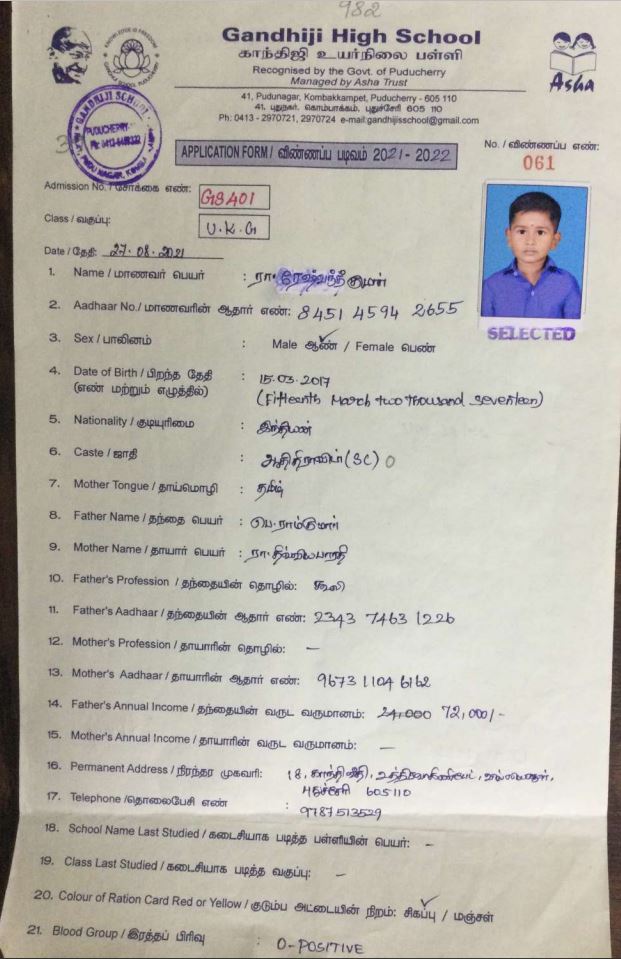 982
Gandhiji High School
காந்திஜி உயர்நிலை பள்ளி
Recognised by the Govt. of Puducherry
Managed by Asha Trust
Asha
41, Pudunagar, Kombakkampet, Puducherry - 605 110
41, புதுநகர், கொம்பாக்கம்பேட், புதுச்சேரி 605 110
Ph: 0413 - 2970721, 2970724 e-mail:gandhijisschool@gmail.com
GANDHIJI SCHOOL
PUDUCHERRY
APPLICATION FORM / விண்ணப்ப படிவம் 2021 - 2022
No. / விண்ணப்ப எண்:
061
Admission No. / சேர்க்கை எண்: GS401
Class / வகுப்பு: U.K.G
Date / தேதி: 27.08.2021
SELECTED
1. Name / மாணவர் பெயர் : ரா.
2. Aadhaar No./ மாணவரின் ஆதார் எண்: 8451 4594 2655
3. Sex / பாலினம் : Male ஆண் / Female பெண்
4. Date of Birth / பிறந்த தேதி : 15.03.2017
(எண் மற்றும் எழுத்தில்) (Fifteenth March two thousand seventeen)
5. Nationality / குடியுரிமை : இந்தியன்
6. Caste / ஜாதி : ஆதிதிராவிடர் (SC)
7. Mother Tongue / தாய்மொழி : தமிழ்
8. Father Name / தந்தை பெயர் : பெ.ராம்குமார்
9. Mother Name / தாயார் பெயர் : ரா.திவ்யபாரதி
10. Father's Profession / தந்தையின் தொழில்: கூலி
11. Father's Aadhaar / தந்தையின் ஆதார் எண்: 2343 7463 1226
12. Mother's Profession / தாயாரின் தொழில்: —
13. Mother's Aadhaar / தாயாரின் ஆதார் எண்: 9673 1104 6162
14. Father's Annual Income / தந்தையின் வருட வருமானம்: 24,000 72,000/-
15. Mother's Annual Income / தாயாரின் வருட வருமானம்: —
16. Permanent Address / நிரந்தர முகவரி: 18, காந்தி வீதி,
புதுச்சேரி 605110
17. Telephone /தொலைபேசி எண் : 9787513529
18. School Name Last Studied / கடைசியாக படித்த பள்ளியின் பெயர்: -
19. Class Last Studied / கடைசியாக படித்த வகுப்பு: -
20. Colour of Ration Card Red or Yellow / குடும்ப அட்டையின் நிறம்: சிகப்பு / மஞ்சள்
21. Blood Group / இரத்தப் பிரிவு : O-POSITIVE